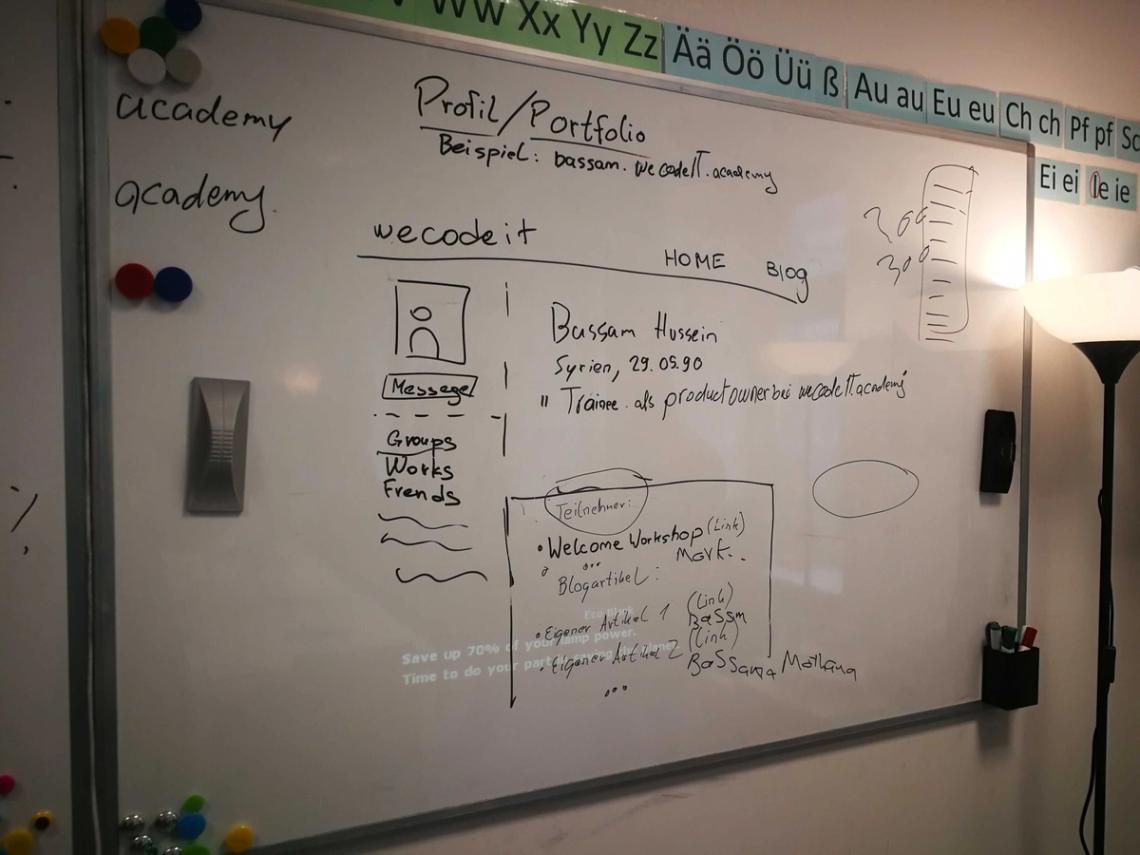 Ww Xx Yy Zz Ää Öö Üü ß Au au Eu eu Ch ch Pf pf Sc
Ei ei Ie ie
academy
academy
Profil/Portfolio
Beispiel: bassam.wecodeIT.academy
200
300
wecodeit
HOME Blog
Message
Groups
Works
Frends
Bassam Hussein
Syrien, 29.05.90
" Trainee als productowner bei wecodeIT.academy"
Teilnehmer:
• Welcome Workshop (Link)
... Mark..
Blogartikel:
• Eigener Artikel 1 (Link)
BaSSm
• Eigener Artikel 2 (Link)
BaSSama Mothana
...
Save up 70% of your lamp power.
Time to do your part saving the planet